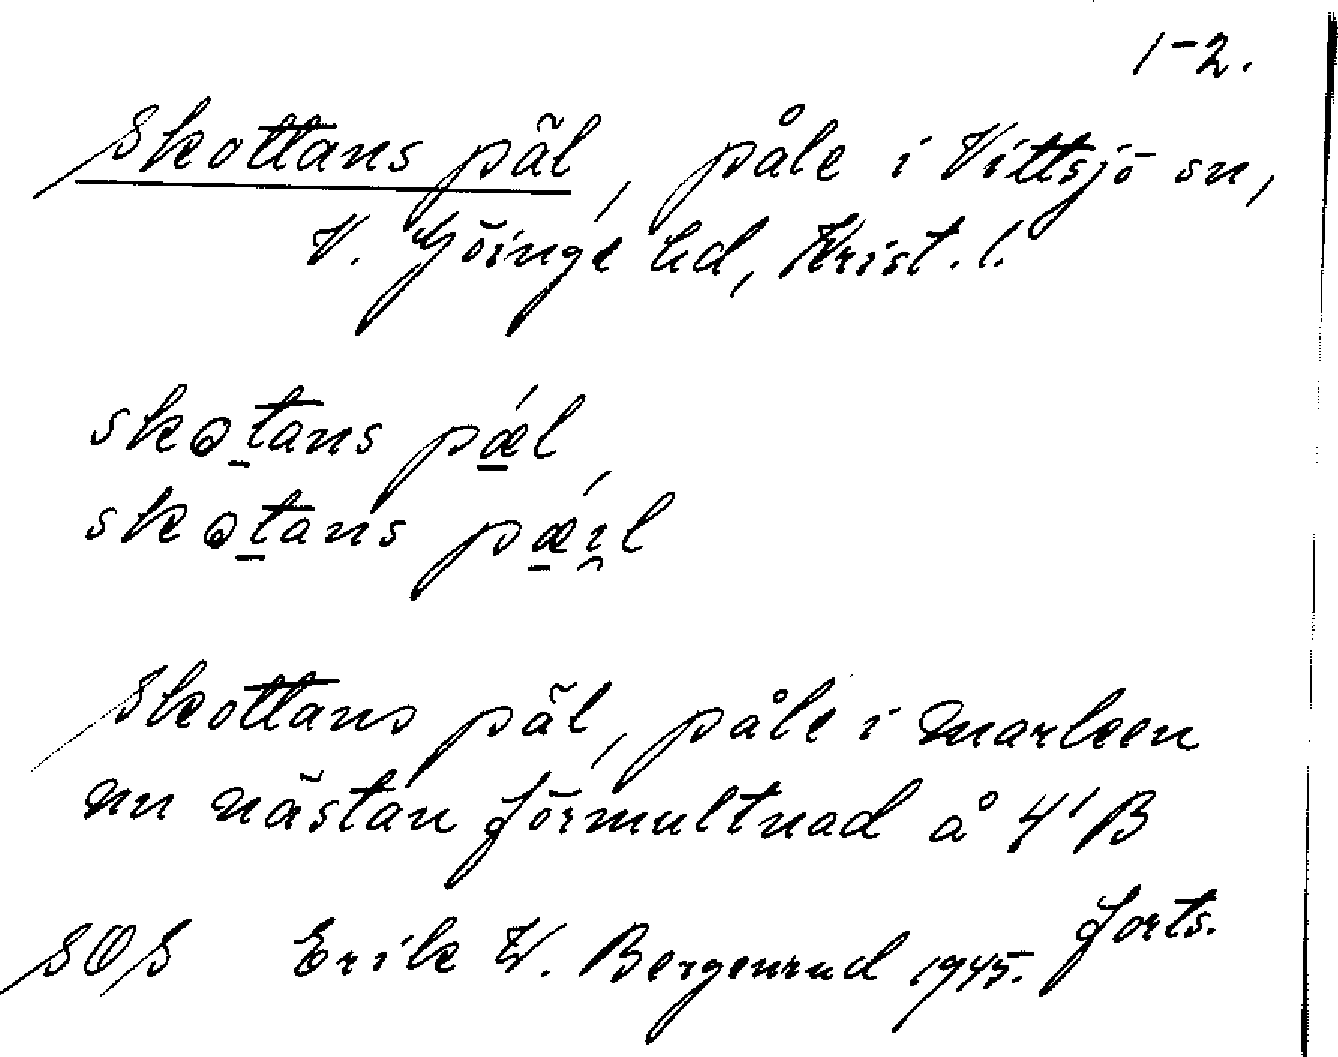 1-2.
Skottans päl, påle i Vittsjö sn,
V. Göinge hd, Krist. l.
skǫt̲ans pǽ̲l
skǫt̲ans pǽ̲i̯l
Skottans päl, påle i marken
nu nästan förmultnad å 4'B
forts.
SOS Erik W. Bergenrud 1945.